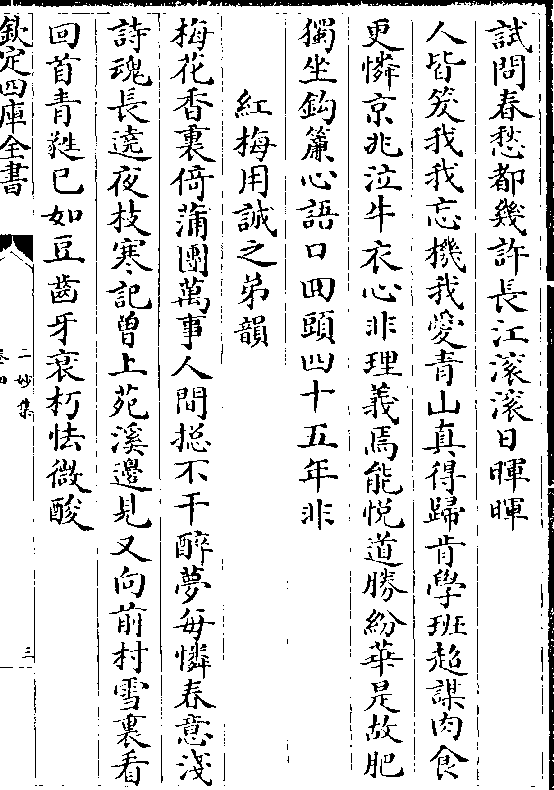 試問春愁都幾許長江滚滚日暉暉
人皆笑我我忘機我愛青山真得歸肯學班超謀肉食
更憐京兆泣牛衣心非理義焉能悦道勝紛華是故肥
獨坐鈎簾心語口回頭四十五年非
紅梅用誠之弟韻
梅花香裏倚蒲團萬事人間捴不干醉夢每憐春意淺
詩魂長遶夜枝寒記曽上苑溪邊見又向前村雪裏看
回首青䕺已如豆齒牙衰朽怯微酸
欽定四庫全書
二妙集
卷四
三